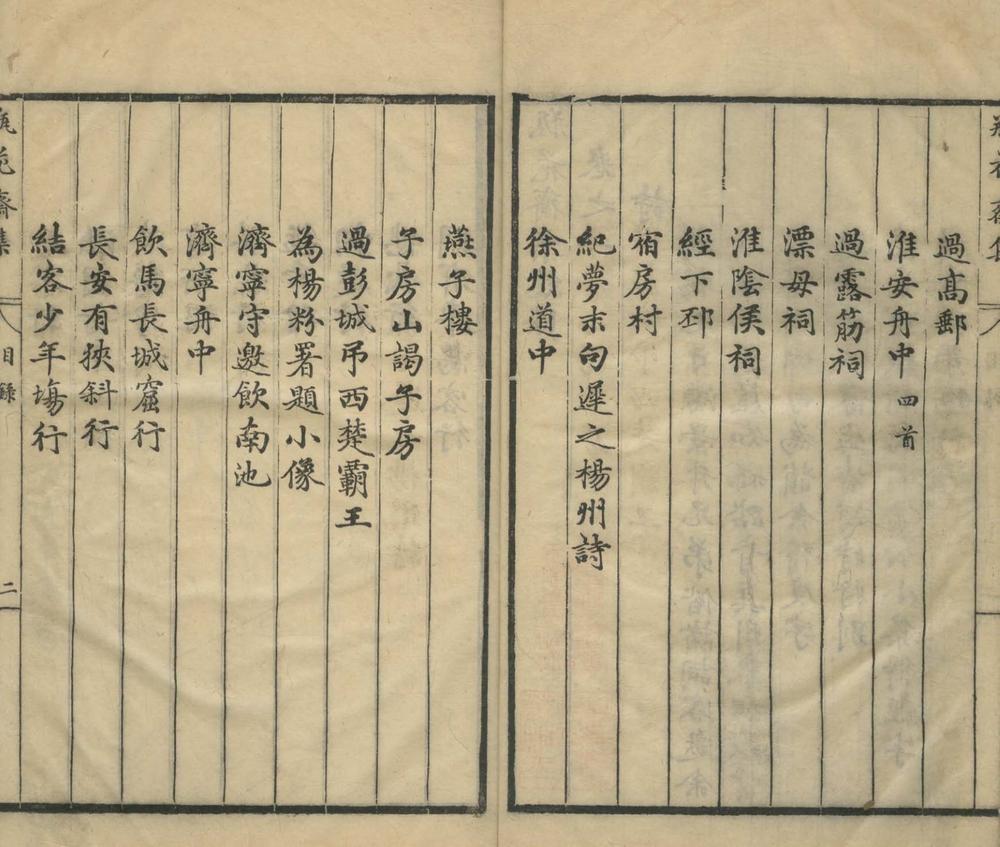 過髙郵
淮安舟中 四首
過露筋祠
漂母祠
淮陰侯祠
經下邳
宿房村
紀夢末句遲之楊州詩
徐州道中
燕子樓
子房山謁子房
過彭城弔西楚霸王
為楊粉署題小像
濟寧守邀飲南池
濟寧舟中
飲馬長城窟行
長安有狹斜行
結客少年塲行
瓶花齋集 目録 二